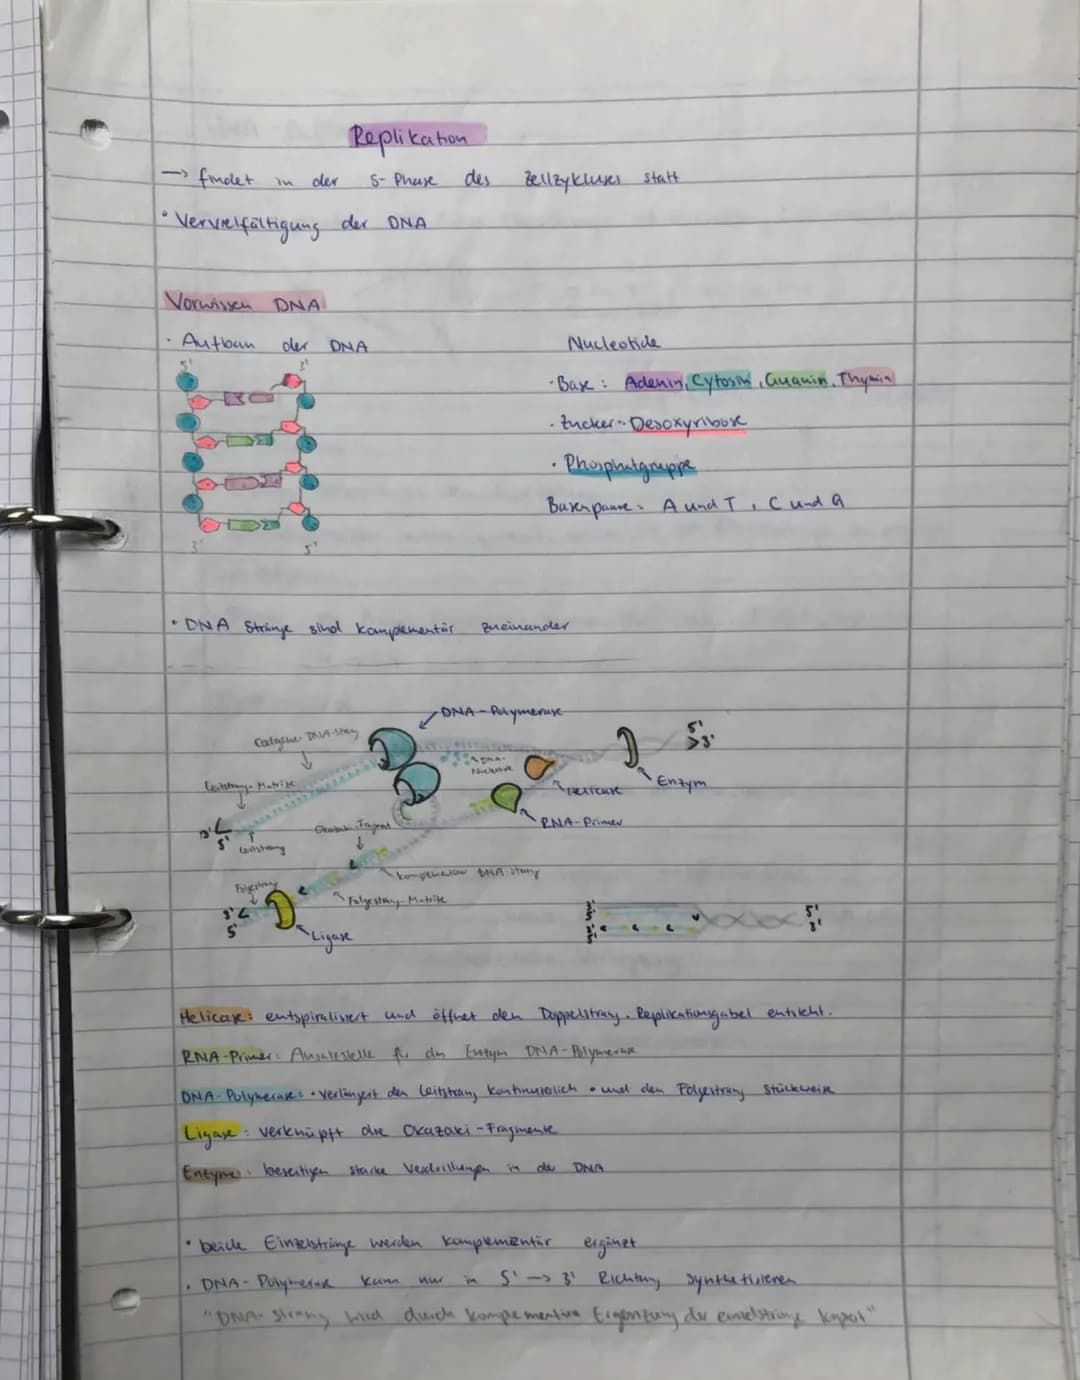 Replikation
→ findet in der S-Phase des Zellzykluses statt
• Vervielfältigung der DNA
Vorwissen DNA
• Aufbau der DNA
5' 3'
3' 5'
Nucleotide
• Base: Adenin, Cytosin, Guanin, Thymin
• Zucker: Desoxyribose
• Phosphatgruppe
Basenpaare: A und T, C und G
• DNA Stränge sind komplementär zueinander
DNA-Polymerase
Codogener DNA-Strang
DNA-Nucleotide
5'
3'
Leitstrang-Matrize
Helicase
Enzym
RNA-Primer
3'
5'
Leitstrang
Okazaki-Fragment
komplementärer DNA-Strang
Folgestrang
Folgestrang-Matrize
3'
5'
Ligase
3' 5'
5' 3'
Helicase: entspiralisiert und öffnet den Doppelstrang. Replikationsgabel entsteht.
RNA-Primer: Ansatzstelle für das Enzym DNA-Polymerase
DNA-Polymerase: • verlängert den Leitstrang kontinuierlich • und den Folgestrang stückweise
Ligase: verknüpft die Okazaki-Fragmente
Enzyme: beseitigen starke Verdrillungen in der DNA
• beide Einzelstränge werden komplementär ergänzt
• DNA-Polymerase kann nur in 5' → 3' Richtung synthetisieren
"DNA-Strang wird durch komplementäre Ergänzung der einzelstränge kopiert"